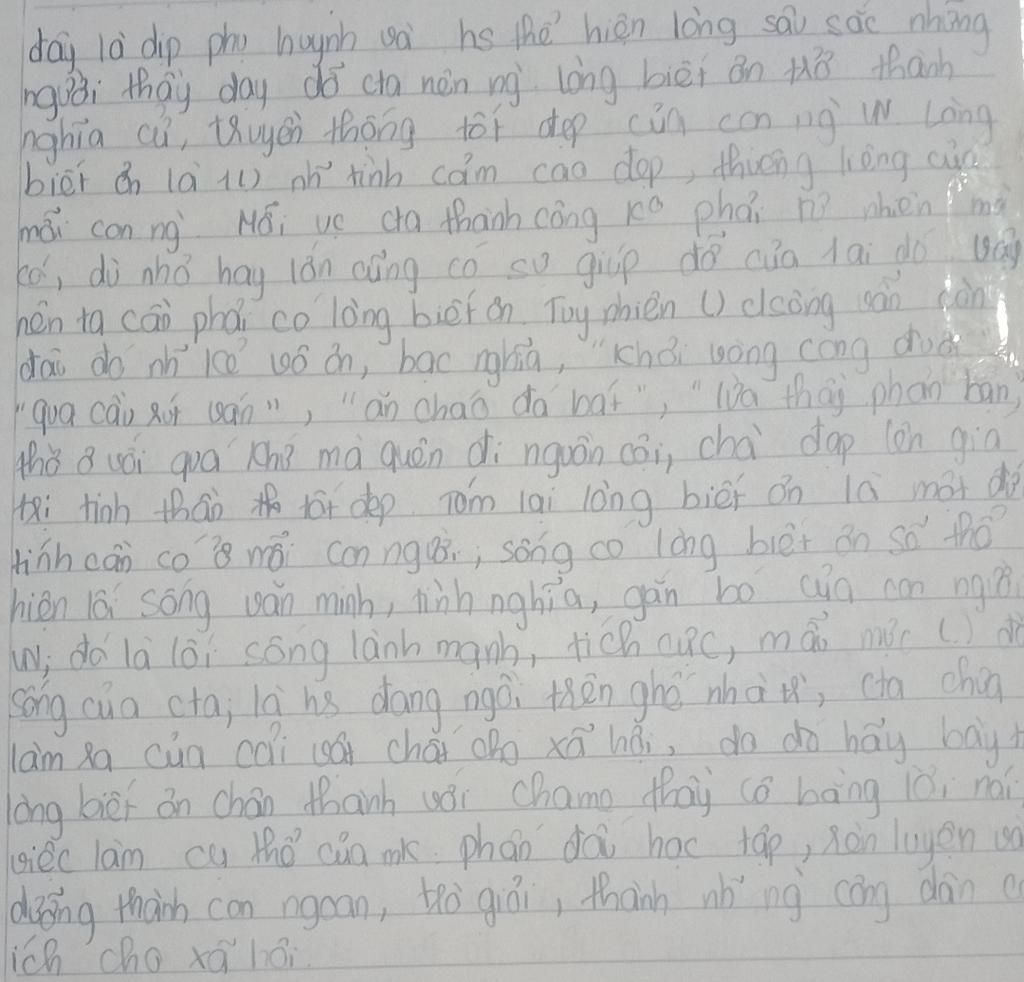 đây là dịp phụ huynh và hs thể hiện lòng sâu sắc những
người thầy dạy dỗ cta nên ng. lòng biết ơn trở thành
nghĩa cử, truyền thống tốt đẹp của con ng VN. Lòng
biết ơn là 1 nh~ tình cảm cao đẹp, thiêng liêng của
mỗi con ng. Mỗi vc cta thành công ko phải tự nhiên mà
có, dù nhỏ hay lớn cũng có sự giúp đỡ của 1 ai đó vậy
nên ta cần phải có lòng biết ơn. Tuy nhiên () đsống vẫn còn
đâu đó nh~ kẻ vô ơn, bạc nghĩa, "khỏi vòng cong đuôi
"qua cầu rút ván", "ăn cháo đá bát", "lừa thầy phản bạn,
thờ ơ với quá khứ mà quên đi nguồn cội, chà đạp lên giá
trị tinh thần tốt đẹp. Tóm lại lòng biết ơn là một đức
tính cần có ở mỗi con người, sống có lòng biết ơn sẽ thể
hiện lối sống văn minh, tình nghĩa, gắn bó của con người
VN; đó là lối sống lành mạnh, tích cực, mẫu mực () đời
sống của cta; là hs đang ngồi trên ghế nhà tr', cta chưa
làm ra của cải vật chất cho xã hội, do đó hãy bày t
lòng biết ơn chân thành với cha mẹ thầy cô bằng lời nói
việc làm cụ thể của mk. phấn đấu học tập, rèn luyện và
dưỡng thành con ngoan, trò giỏi, thành nh~ ng công dân c
ích cho xã hội.